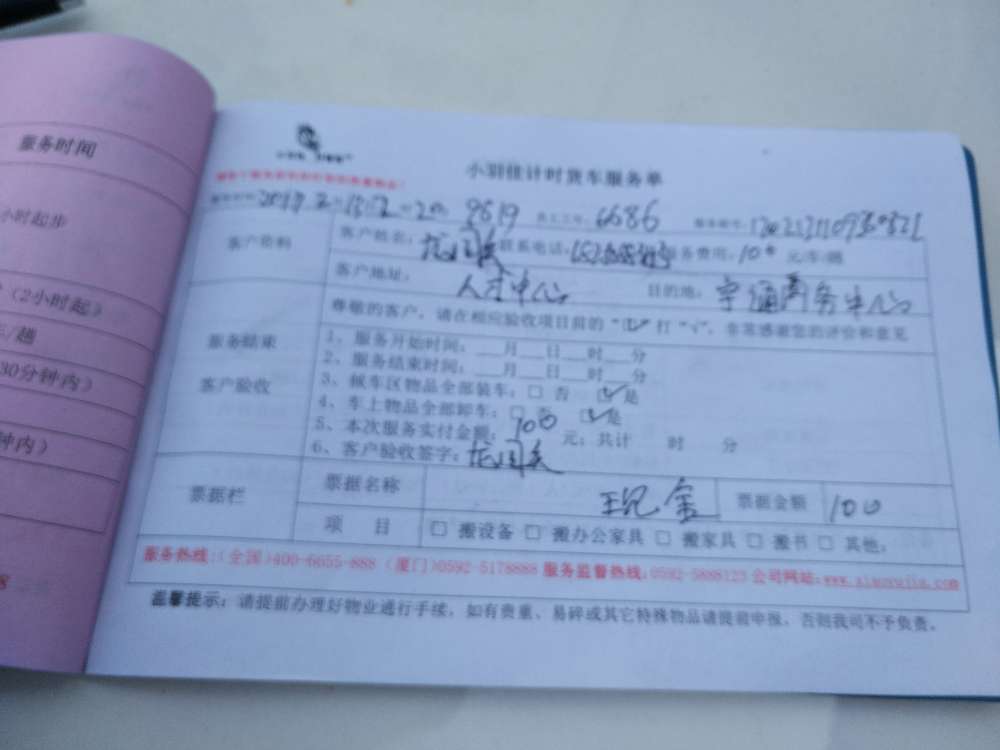 服务时间
小时起步
（2小时起）
/趟
30分钟内）
钟内）
小羽佳计时货车服务单
9819 员工工号：6686
客户资料 客户姓名： 联系电话： 服务费用：100 元/车/趟
客户地址： 人才中心 目的地： 宇通商务中心
服务结束
客户验收
尊敬的客户，请在相应验收项目前的“□”打“√”，非常感谢您的评价和意见
1、服务开始时间：___月___日___时___分
2、服务结束时间：___月___日___时___分
3、候车区物品全部装车：□ 否 ☑是
4、车上物品全部卸车：□ 否 ☑是
5、本次服务实付金额：100 元；共计 时 分
6、客户验收签字：
票据栏 票据名称 现金 票据金额 100
项 目 □ 搬设备 □ 搬办公家具 □ 搬家具 □ 搬书 □ 其他：
服务热线：（全国）400-6655-888 （厦门）0592-5178888 服务监督热线：0592-5888123 公司网站：www.xiaoyujia.com
温馨提示：请提前办理好物业通行手续，如有贵重、易碎或其它特殊物品请提前申报，否则我司不予负责。